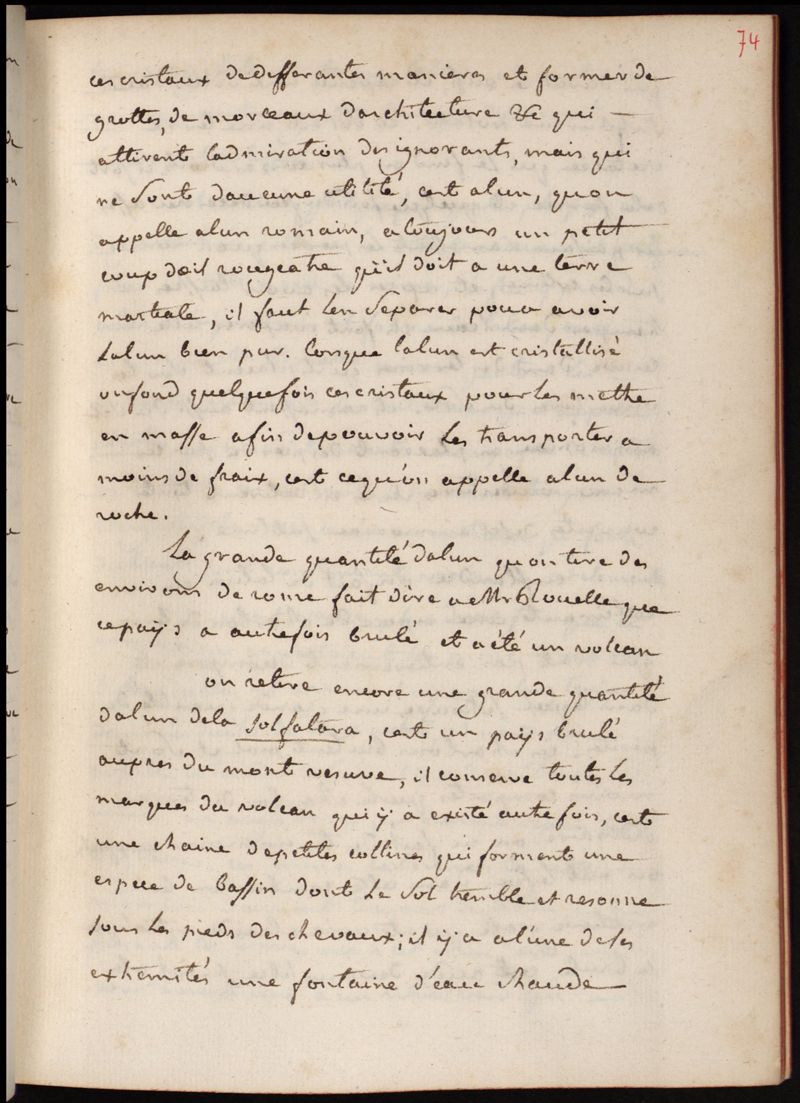 74
ces cristaux de differantes manieres et former de
grottes, de morceaux d'architecture &c qui —
attirent l'admiration des ignorants, mais qui
ne sont d'aucune utilité, cet alun, quon
appelle alun romain, a toujours un petit
coup d'œil rougeatre qu'il doit a une terre
martiale, il faut l'en separer pour avoir
l'alun bien pur. lorsque l'alun est cristallisé
on fond quelquefois ces cristaux pour les mettre
en masse afin de pouvoir les transporter a
moins de fraix, cest ce qu'on appelle alun de
roche.
La grande quantité dalun quon tire des
environs de rome fait dire a Mr Rouelle que
ce pays a autrefois brulé et a été un volcan
on retire encore une grande quantité
dalun dela Solfatara, cest un pays brulé
aupres du mont vesuve, il conserve toutes les
marques du volcan qui y a existé autrefois, cest
une chaine de petites collines qui forment une
espece de Bassin dont le sol tremble et resonne
sous les pieds des chevaux; il y a a l'une de ses
extremités une fontaine d'eau chaude —